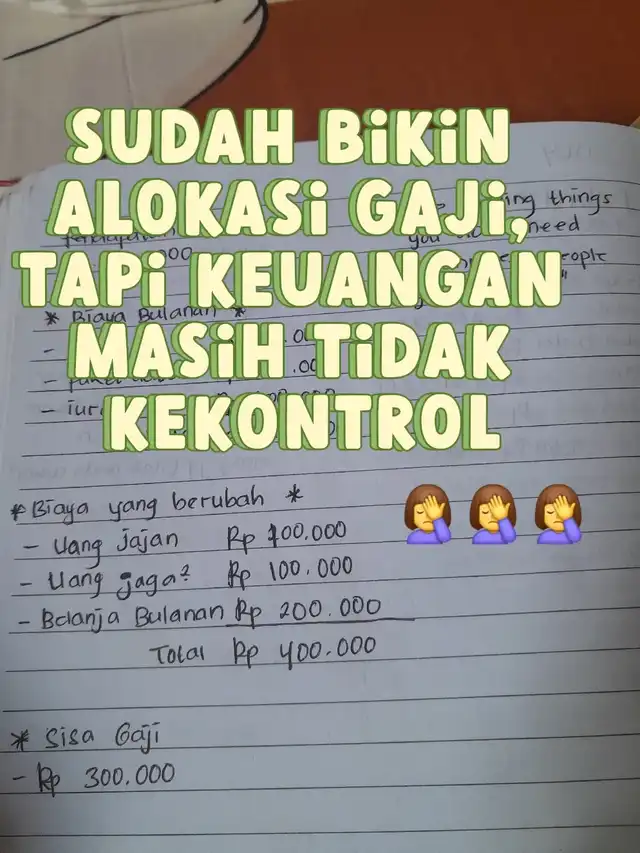 SUDAH BiKiN
ALOKASi GAJi,
TAPi KEUANGAN
MASiH TiDAK
KEKONTROL
things
need
* Biaya Bulanan *
* Biaya yang berubah *
- Uang jajan Rp 100.000
- Uang jaga² Rp 100.000
- Belanja Bulanan Rp 200.000
Total Rp 400.000
* Sisa Gaji
- Rp 300.000